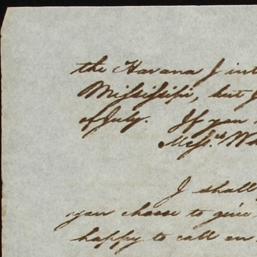 the Havana I int
Mississippi, but I
of July. If you
Messrs. W
I shall
you choose to give
happy to call on